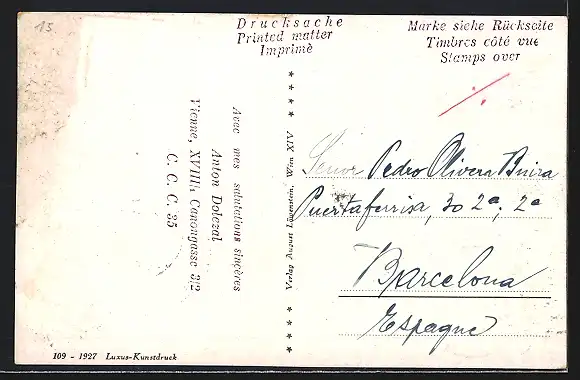 15.
Drucksache
Printed matter
Imprimè
Marke siehe Rückseite
Timbres côté vue
Stamps over
Avec mes salutations sincères
Anton Dolezal
Vienne, XVIII/1 Canongasse 3/2
C. C. C. 35
Verlag August Leutenstein, Wien XIV
Senor Pedro Olivera Buira
Puertaferrisa, 30 2º, 2ª
Barcelona
Espagne
109 - 1927 Luxus-Kunstdruck